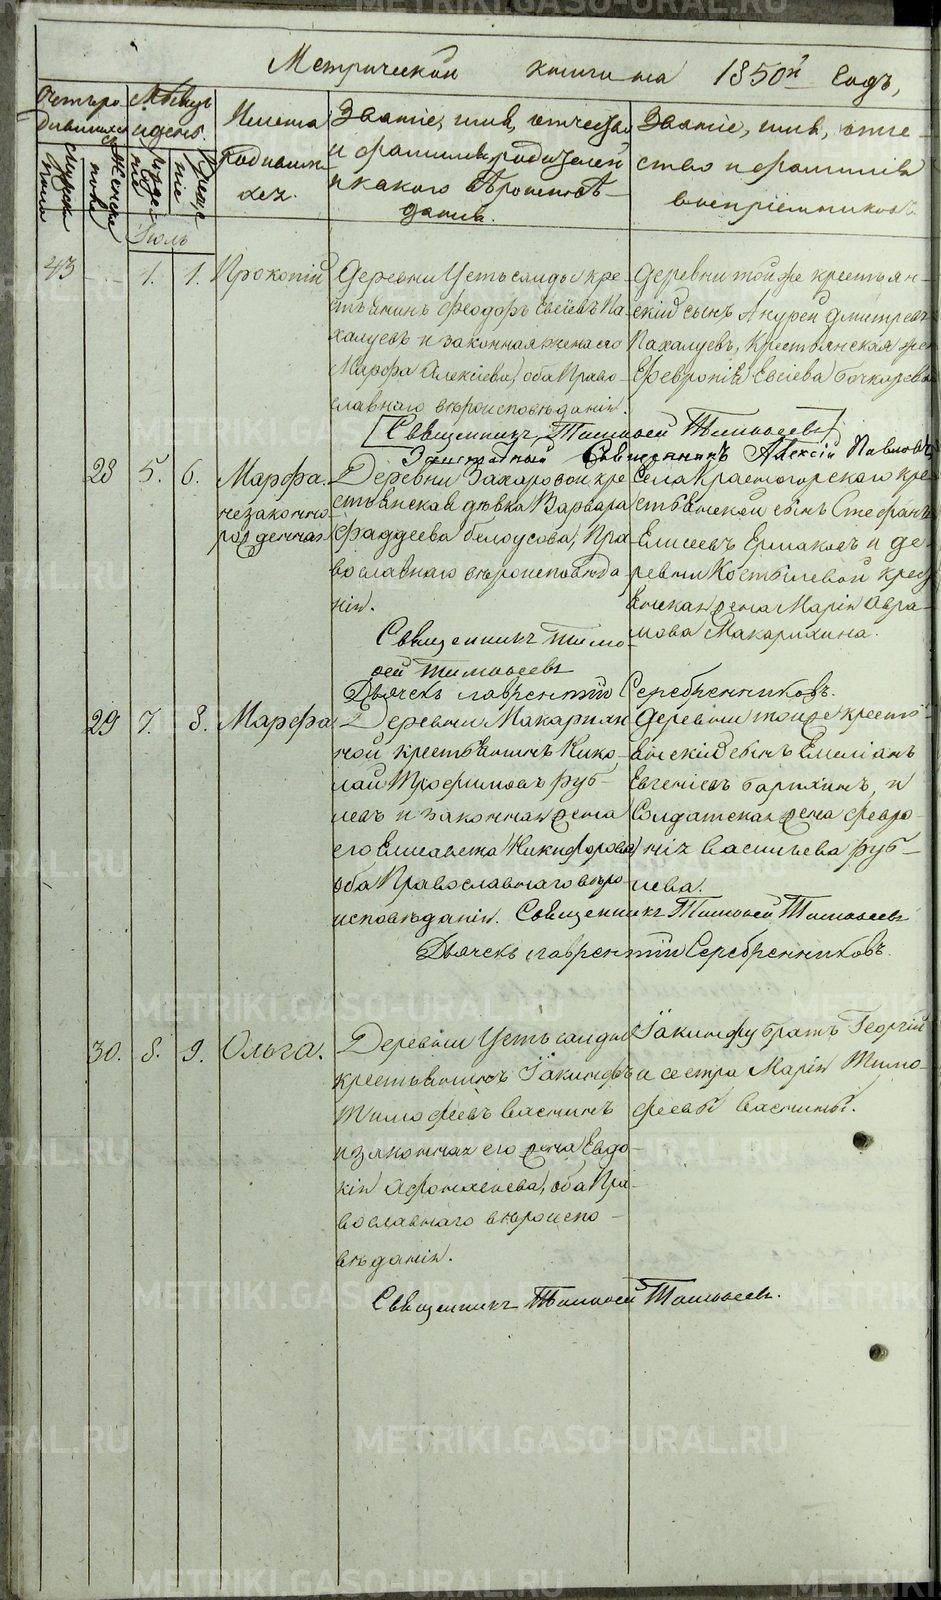 Метрической книги на 1850й Годъ,
Счетъ родившихся
Мѣсяцъ и день.
Имена родившихся.
Званіе, имя, отчество и фамилія родителей и какого вѣроисповѣданія.
Званіе, имя, отчество и фамилія воспріемниковъ.
Мужеска пола
Женска пола
рожденіе
крещеніе
Іюль
43 1. 1. Прокопій
Деревни Усть саиды кре-
стьянинъ Феодоръ Евсіевъ Па-
халуевъ и законная жена его
Марфа Алексіева, оба Право-
славнаго вѣроисповѣданія.
Деревни тойже крестьян-
скій сынъ Андрей Дмитріевъ
Пахалуевъ, Крестьянская жена
Февронія Евсіева Бочкарева
Священникъ Тимоѳей Тимоѳеевъ
Заштатный Священникъ Алексій Павловъ
28 5. 6. Марфа.
незаконно
рожденная
Деревни Захаровой кре-
стьянская дѣвка Варвара
Фаддеева Белоусова, Пра-
вославнаго вѣроисповѣда
нія.
Села Красногорскаго кре-
стьянской сынъ Стефанъ
Елисеевъ Ермаковъ и де-
ревни Костылевой крест
янская жена Марія Авра-
мова Макарихина.
Священникъ Тимо-
ѳей Тимоѳеевъ
Дьячекъ Лаврентій Серебренниковъ.
29 7. 8. Марфа
Деревни Макарихи-
ной крестьянинъ Нико-
лай Трофимовъ Руб-
левъ и законная жена
его, Елисавета Никифорова
оба Православнаго вѣро-
исповѣданія.
Деревни тойже кресть-
янскій сынъ Емеліанъ
Евгеніевъ Барихинъ, и
Солдатская жена Февро-
нія Васильева Руб-
лева.
Священникъ Тимоѳей Тимоѳеевъ
Дьячекъ Лаврентій Серебренниковъ.
30. 8. 9. Ольга.
Деревни Усть саиды
крестьянинъ Іакинфъ
Тимофеевъ Васнинъ
и законная его жена Евдо-
кія Афонасьева, оба Пра-
вославнаго вѣроиспо-
вѣданія.
Іакинфу братъ Георгій
и сестра Марія Тимо-
феевы Васнины.
Священникъ Тимоѳей Тимоѳеевъ.
METRIKI.GASO-URAL.RU